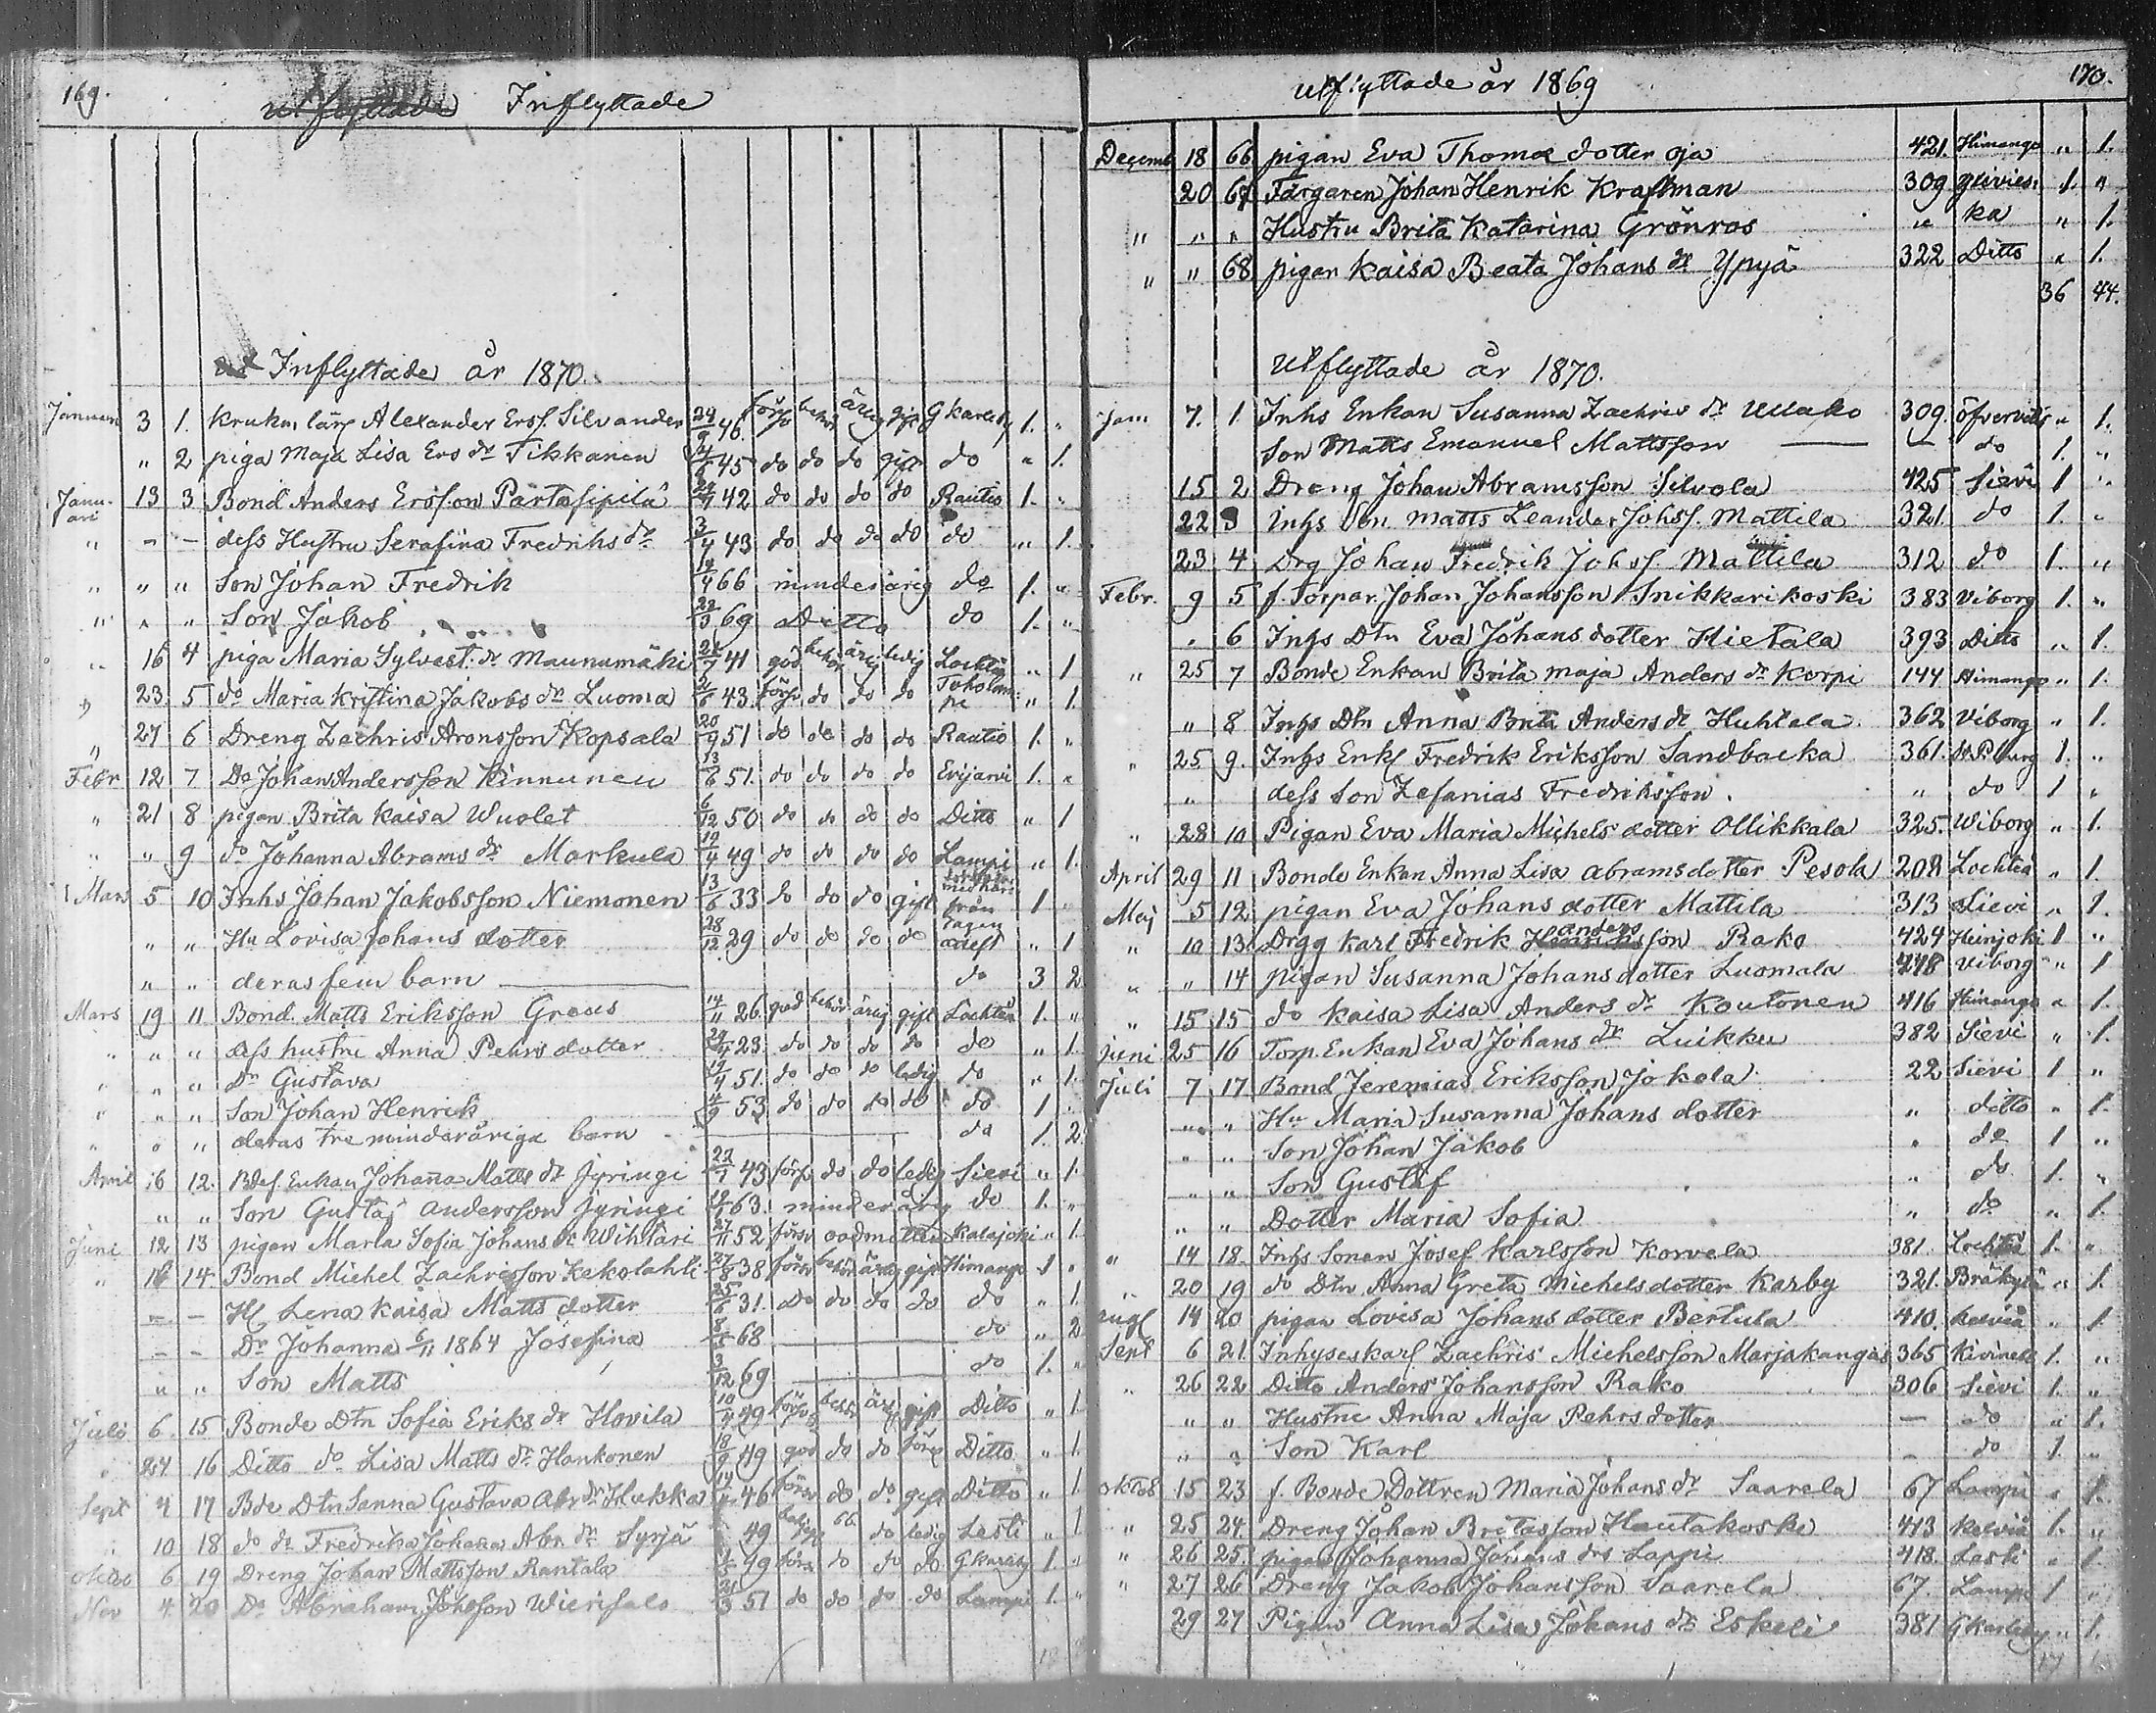 169.
Utflyttade Inflyttade
Inflyttade år 1870.
Januari 3 1. Krukm. lärl Alexander Ersf. Silvander 24/9 46. förs behör ärlig gift GKarleby 1. "
" 2 piga Maja Lisa Ers dr Tikkanen 14/6 45 do do do gift do " 1.
Januari 13 3 Bond Anders Ersson Partasipilä 29/9 42 do do do do Rautio 1. "
" - - dess Hustru Serafina Fredriks dr 3/4 43 do do do do do " 1.
" " " Son Johan Fredrik 12/4 66 minderårig do 1. "
" " " Son Jakob 22/3 69 Ditto do 1. "
" 16 4 piga Maria Sylvest. dr Maunumäki 24/7 41 god behör ärlig ledig Lochteå " 1
" 23 5 do Maria Kristina Jakobs dr Luoma 2/6 43 förs do do do Toholampi " 1
" 27 6 Dreng Zachris Aronsson Kopsala 20/9 51 do do do do Rautio 1. "
Febr 12 7 Do Johan Andersson Kinnunen 13/6 51. do do do do Evijärvi 1. "
" 21 8 pigan Brita Kaisa Wuolet 6/12 50 do do do do Ditto " 1
" " 9 do Johanna Abrams dr Markula 19/4 49 do do do do Lampi " 1.
Mars 5 10 Inhs Johan Jakobsson Niemonen 13/6 33 do do do gift från 1 "
" " Hu Lovisa Johans dotter 28/12 29 do do do do " 1
" " deras fem barn do 3 2
Mars 19 11 Bond. Matts Eriksson Greus 14/11 26. god behör ärlig gift Lochteå 1. "
" " " dess hustru Anna Pehrs dotter 29/4 23. do do do do do " 1.
" " " Dr Gustava 19/4 51. do do do ledig do " 1.
" " " Son Johan Henrik 4/9 53 do do do do do 1 "
" " " deras tre minderåriga barn do 1. 2.
April 16 12. Bdes. Enkan Johanna Matts dr Jyringi 22/7 43 förs do do ledig Sievi " 1.
" " Son Gustaf Andersson Jyringi 63. minderårig do 1. "
Juni 12 13 pigan Maria Sofia Johans dr Wihtari 27/11 52 förs oadmittera Kalajoki " 1
" 16 14 Bond Michel Zachrisson Kekolahti 27/8 38 förs behör ärlig gift Himango 1 "
- - Hu Lena Kaisa Matts dotter 25/6 31. Do do do do do " 1.
- - Dr Johanna 6/11 1864 Josefina 8/5 68 do " 2
" " Son Matts 3/12 69 do 1. "
Juli 6 15 Bonde Dtn Sofia Eriks dr Hovila 10/4 49 förs behör ärlig gift Ditto " 1.
" 27 16 Ditto do Lisa Matts dr Hankonen 18/9 49 god do do Ditto " 1.
Sept 4 17 Bde Dtn Sanna Gustava Abr dr Hukka 46 förs do do gift Ditto " 1
" 10 18 do dr Fredrika Johanna Abr. dr Syrjä 49 do ledig Lesti " 1
Oktob 6 19 Dreng Johan Mattsson Rantala 49 förs do do do GKarleby 1. "
Nov 4 20 Do Abraham Johsson Wierisalo 51 do do do do Lampi 1. "
170.
Utflyttade år 1869
Decemb 18 66 pigan Eva Thomæ dotter Oja 421. Himango " 1.
20 67 Färgaren Johan Henrik Kraftman 309 Ylivies- 1. "
" " " Hustru Brita Katarina Grönros " ka " 1.
" " 68 pigan Kaisa Beata Johans dr Ypyä 322 Ditto " 1.
36 44.
Utflyttade år 1870.
Jan 7. 1 Inhs Enkan Susanna Zachris dr Ullako 309. " 1.
Son Matts Emanuel Mattsson — do 1. "
15 2 Dreng Johan Abramsson Silvola 425 Sievi 1 "
22 3 inhs son Matts Leander Johsf. Mattila 321. do 1. "
23 4 Drg Johan Fredrik Johsf. Mattila 312 do 1. "
Febr. 9 5 f. Torpar. Johan Johansson Snikkarikoski 383 Viborg 1. "
" 6 Inhs Dtn Eva Johans dotter Hietala 393 Ditto " 1.
" 25 7 Bonde Enkan Brita Maja Anders dr Korpi 144 Himango " 1.
" 8 Inhs Dtn Anna Brita Anders dr Huhtala 362 Viborg " 1.
" 25 9. Inhs Enkl Fredrik Eriksson Sandbacka 361. St.P.burg 1. "
" dess son Zefanias Fredriksson. " do 1 "
" 28 10 Pigan Eva Maria Michels dotter Ollikkala 325. Wiborg " 1.
April 29 11 Bonde Enkan Anna Lisa Abramsdotter Pesola 208 Lochteå " 1.
Maj 5 12 pigan Eva Johans dotter Mattila 313 Sievi " 1.
" 10 13. Drgg Karl Fredrik Anders son Rako 424 Heinjoki 1 "
" " 14 pigan Susanna Johans dotter Luomala 278 Viborg " 1
" 15 15 do Kaisa Lisa Anders dr Koutonen 416 Himango " 1.
Juni 25 16 Torp. Enkan Eva Johans dr Luikku 382 Sievi " 1.
Juli 7 17 Bond Jeremias Eriksson Jokela 22 Sievi 1 "
" " Hu Maria Susanna Johans dotter " ditto " 1.
" " Son Johan Jakob " do 1 "
" " Son Gustaf " do 1. "
" " Dotter Maria Sofia " do " 1.
" 14 18. Inhs Sonen Josef Karlsson Korvela 381. Lochteå 1. "
" 20 19 do Dtn Anna Greta Michelsdotter Karby 321. " 1.
Aug 14 20 pigan Lovisa Johans dotter Bertula 410. Kelviå " 1
Sept 6 21. Inhyseskarl Zachris Michelsson Marjakangas 365 1. "
" 26 22 Ditto Anders Johansson Rako 306 Sievi 1. "
" " Hustru Anna Maja Pehrsdotter — do " 1.
" " Son Karl — do 1. "
Oktob 15 23 f. Bonde Dottren Maria Johans dr Saarela 67 Lampi " 1.
" 25 24. Dreng Johan Britasson Hautakoski 413 Kelviå 1. "
" 26 25. pigan Johanna Johans drs Lappi 418. Lesti " 1
" 27 26 Dreng Jakob Johansson Saarela 67. Lampi 1 "
29 27 Pigan Anna Lisa Johans dr Eskeli 381 GKarleby " 1.
17